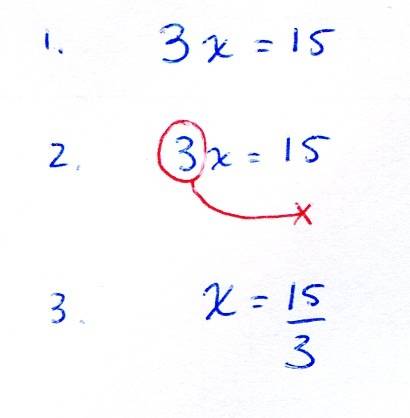 1. 3x = 15
2. 3x = 15
x
3. x = 15/3